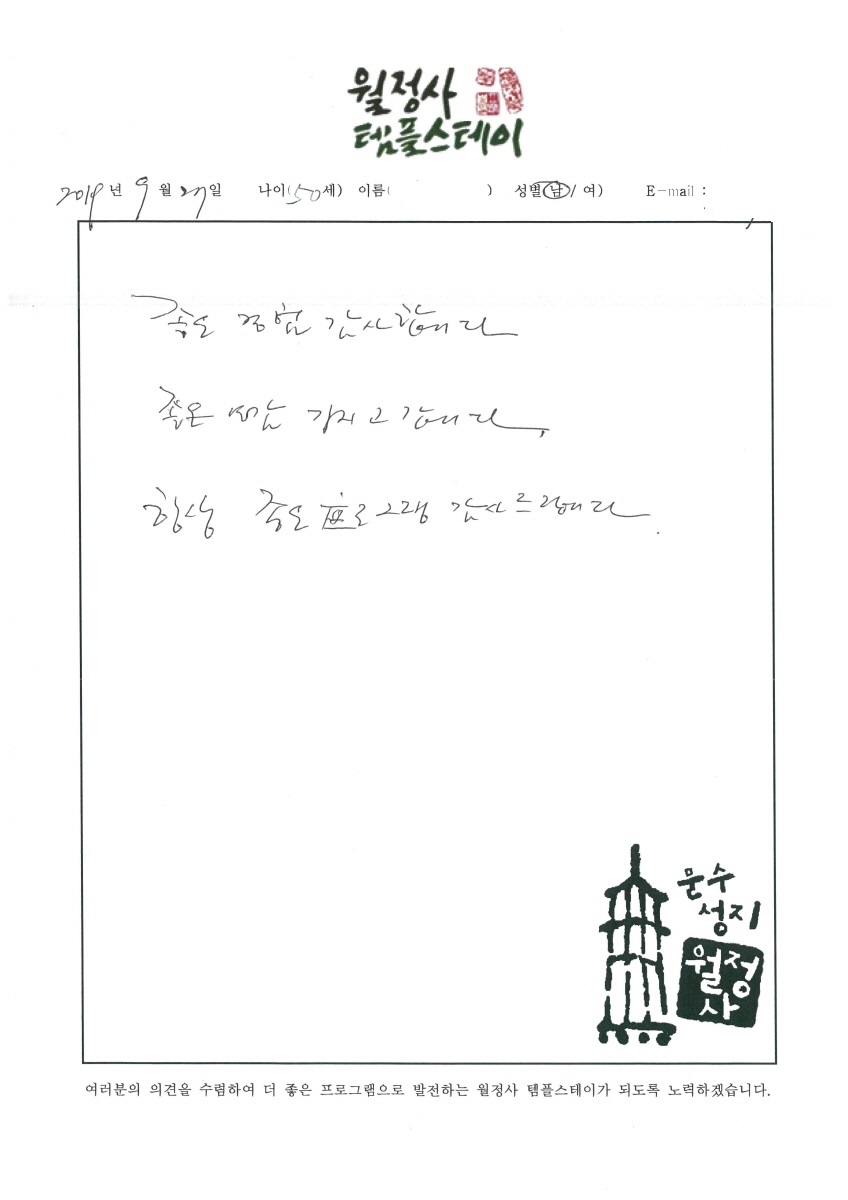 월정사
템플스테이
2019 년 9 월 27 일 나이(50 세) 이름( ) 성별(남/ 여) E-mail :
좋은 경험 감사합니다
좋은 가지고 갑니다.
항상 좋은 프로그램 감사드립니다.
문수
성지
월정
사
여러분의 의견을 수렴하여 더 좋은 프로그램으로 발전하는 월정사 템플스테이가 되도록 노력하겠습니다.